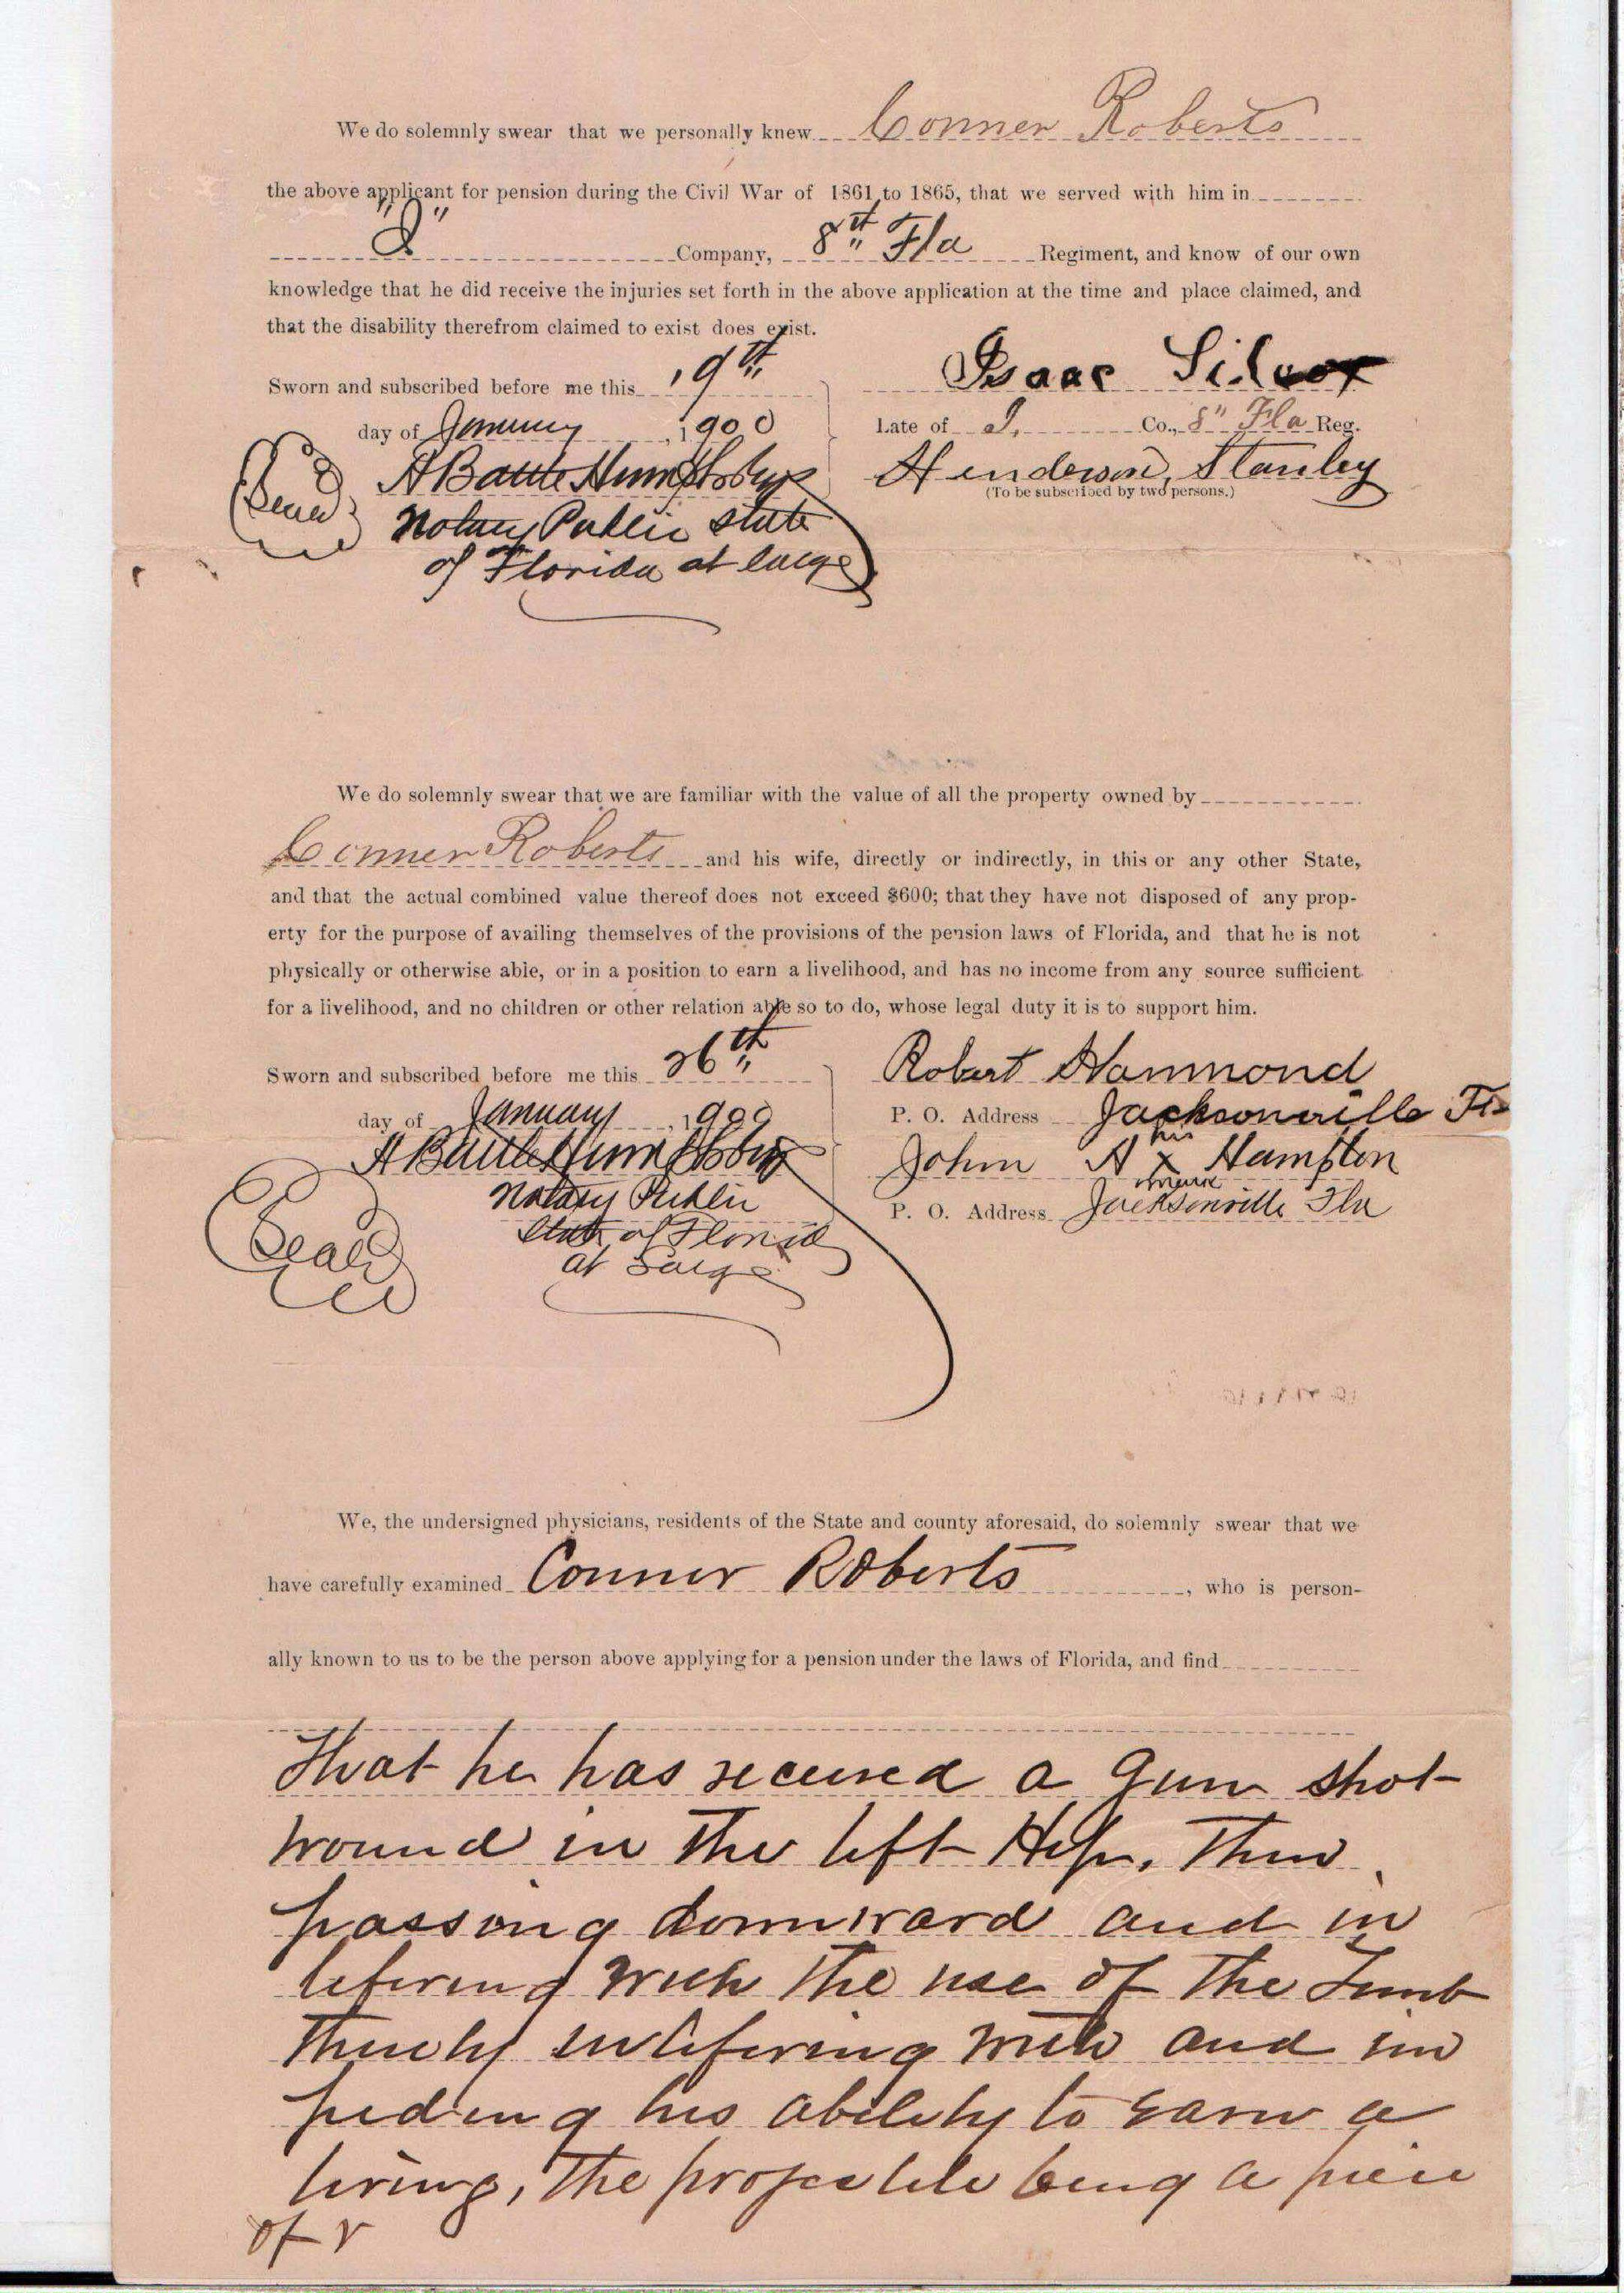 We do solemnly swear that we personally knew Conner Roberts
the above applicant for pension during the Civil War of 1861 to 1865, that we served with him in
"I" Company, 8th Fla Regiment, and know of our own
knowledge that he did receive the injuries set forth in the above application at the time and place claimed, and
that the disability therefrom claimed to exist does exist.
Sworn and subscribed before me this 19th
day of January, 1900
Isaac Silcox
Late of I. Co., 8" Fla Reg.
Henderson Stanley
(To be subscribed by two persons.)
Seal
A Battle
Notary Public State
of Florida at large
We do solemnly swear that we are familiar with the value of all the property owned by
Conner Roberts and his wife, directly or indirectly, in this or any other State,
and that the actual combined value thereof does not exceed $600; that they have not disposed of any prop-
erty for the purpose of availing themselves of the provisions of the pension laws of Florida, and that he is not
physically or otherwise able, or in a position to earn a livelihood, and has no income from any source sufficient
for a livelihood, and no children or other relation able so to do, whose legal duty it is to support him.
Sworn and subscribed before me this 26th
day of January, 1900
A Battle
Notary Public
State of Florida
at Large
Seal
Robert Hammond
P. O. Address Jacksonville Fla
John A his x mark Hampton
P. O. Address Jacksonville Fla
We, the undersigned physicians, residents of the State and county aforesaid, do solemnly swear that we
have carefully examined Conner Roberts, who is person-
ally known to us to be the person above applying for a pension under the laws of Florida, and find
that he has received a gun shot
wound in the left Hip,
passing downward and in
tefering with the use of the Limb
thereby intefering with and im
peding his ability to earn a
living, the projectile being a piece
of